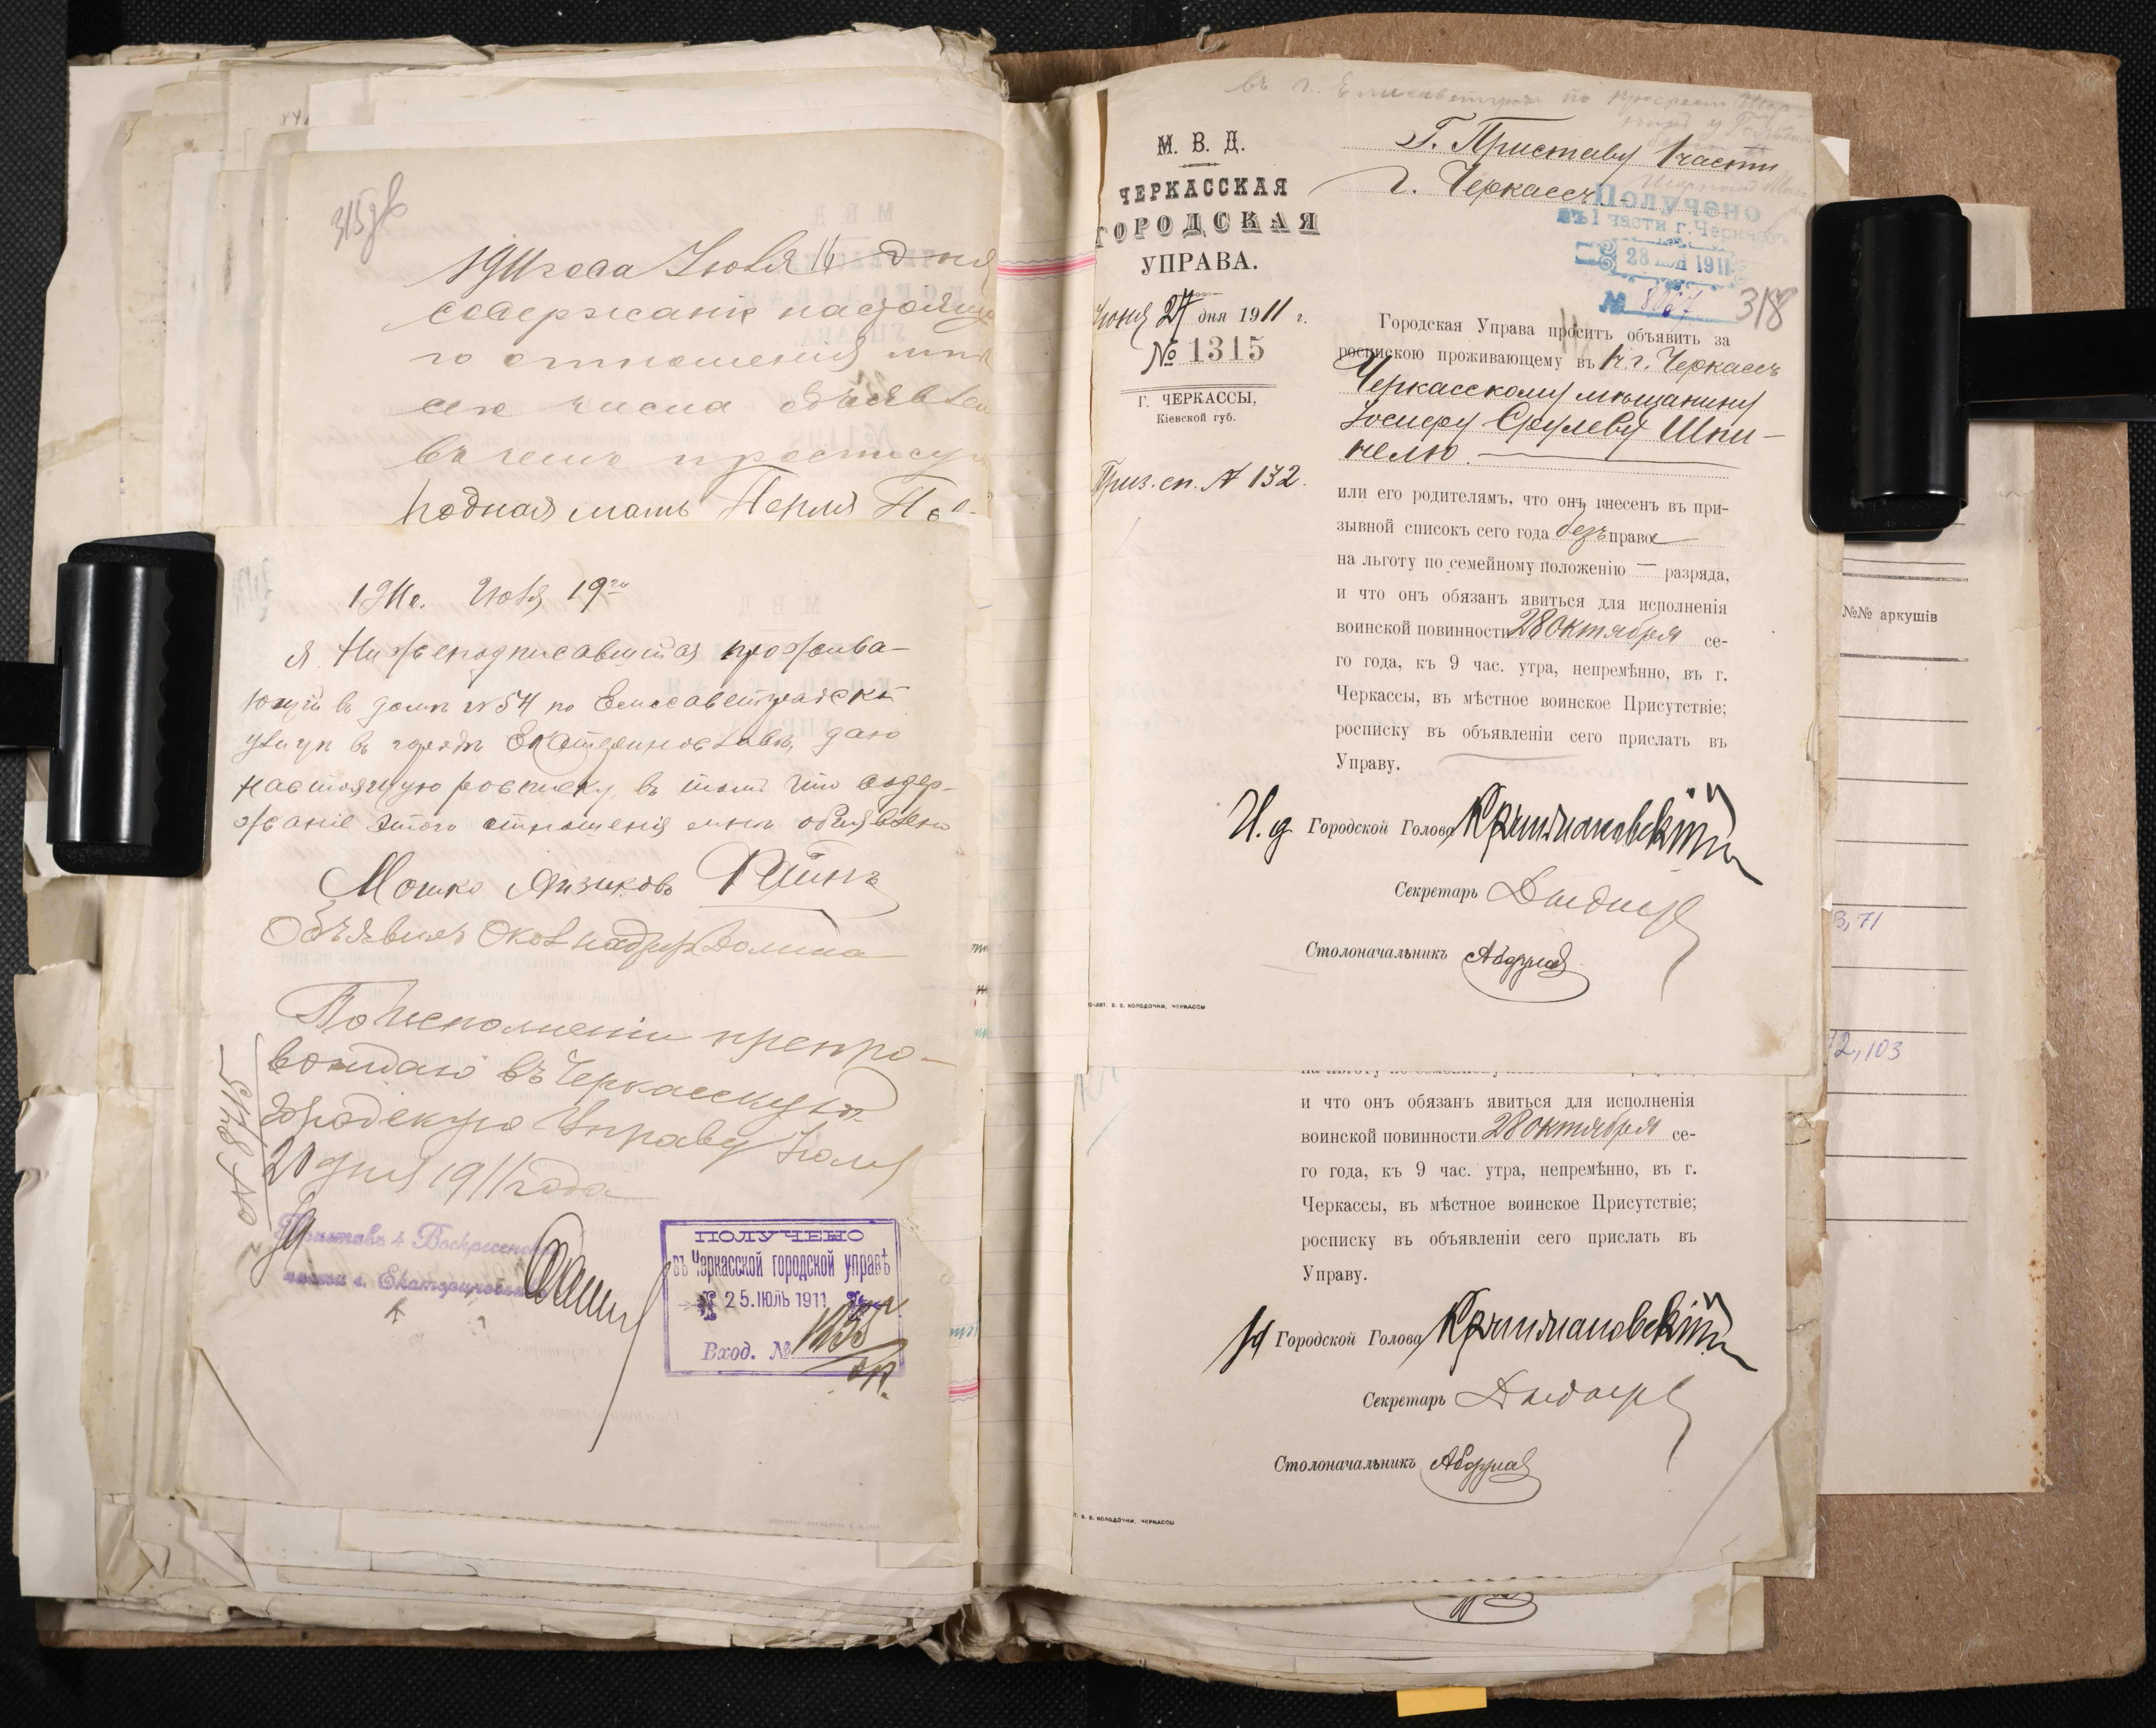 315 об
1911 года Июля 16 дня
содержание настояще
го отношения мне
сего числа объявлен
в чем и росписуюсь
Родная мать Перля
1911 г. Июля 19го
я Нижеподписавшийся прожива-
ющий в доме № 54 по Елисаветградской
улице в городе Екатеринославе, даю
настоящую росписку в том что содер-
жание этого отношения мне объявлено
Мошко Айзиковъ Файнъ
Объявилъ Окол надзир Долина
По исполненіи препро-
вождаю въ Черкасскую
Городскую Управу Июля
20 дня 1911 года
№
Приставъ 4 Воскресенской
части г. Екатеринослава
ПОЛУЧЕНО
въ Черкасской городской управѣ
25.ІЮЛЬ 1911
Вход. №
М. В. Д.
ЧЕРКАССКАЯ
ГОРОДСКАЯ
УПРАВА.
Июня 27 дня 1911 г.
№ 1315
Г. ЧЕРКАССЫ,
Кіевской губ.
Приз. сп. № 132.
въ г. Елисаветград по
Г. Приставу 1 части
г. Черкассъ
Получено
въ 1 части г. Черкассъ
28 июн 1911
№ 8067
318
Городская Управа проситъ объявить за
роспискою проживающему въ 1 ч. г. Черкассъ
Черкасскому мѣщанину
Іосифу Срулеву Шпи-
гелю.
или его родителямъ, что онъ внесенъ въ при-
зывной списокъ сего года безъ права
на льготу по семейному положенію — разряда,
и что онъ обязанъ явиться для исполненія
воинской повинности 28 октября се-
го года, къ 9 час. утра, непремѣнно, въ г.
Черкассы, въ мѣстное воинское Присутствіе;
росписку въ объявленіи сего прислать въ
Управу.
И. д Городской Голова
Секретарь
Столоначальникъ
В. В. КОЛОДОЧКИ, ЧЕРКАССЫ
и что онъ обязанъ явиться для исполненія
воинской повинности 28 октября се-
го года, къ 9 час. утра, непремѣнно, въ г.
Черкассы, въ мѣстное воинское Присутствіе;
росписку въ объявленіи сего прислать въ
Управу.
Городской Голова
Секретарь
Столоначальникъ
В. В. КОЛОДОЧКИ, ЧЕРКАССЫ
№№ аркушів
3, 71
2, 103